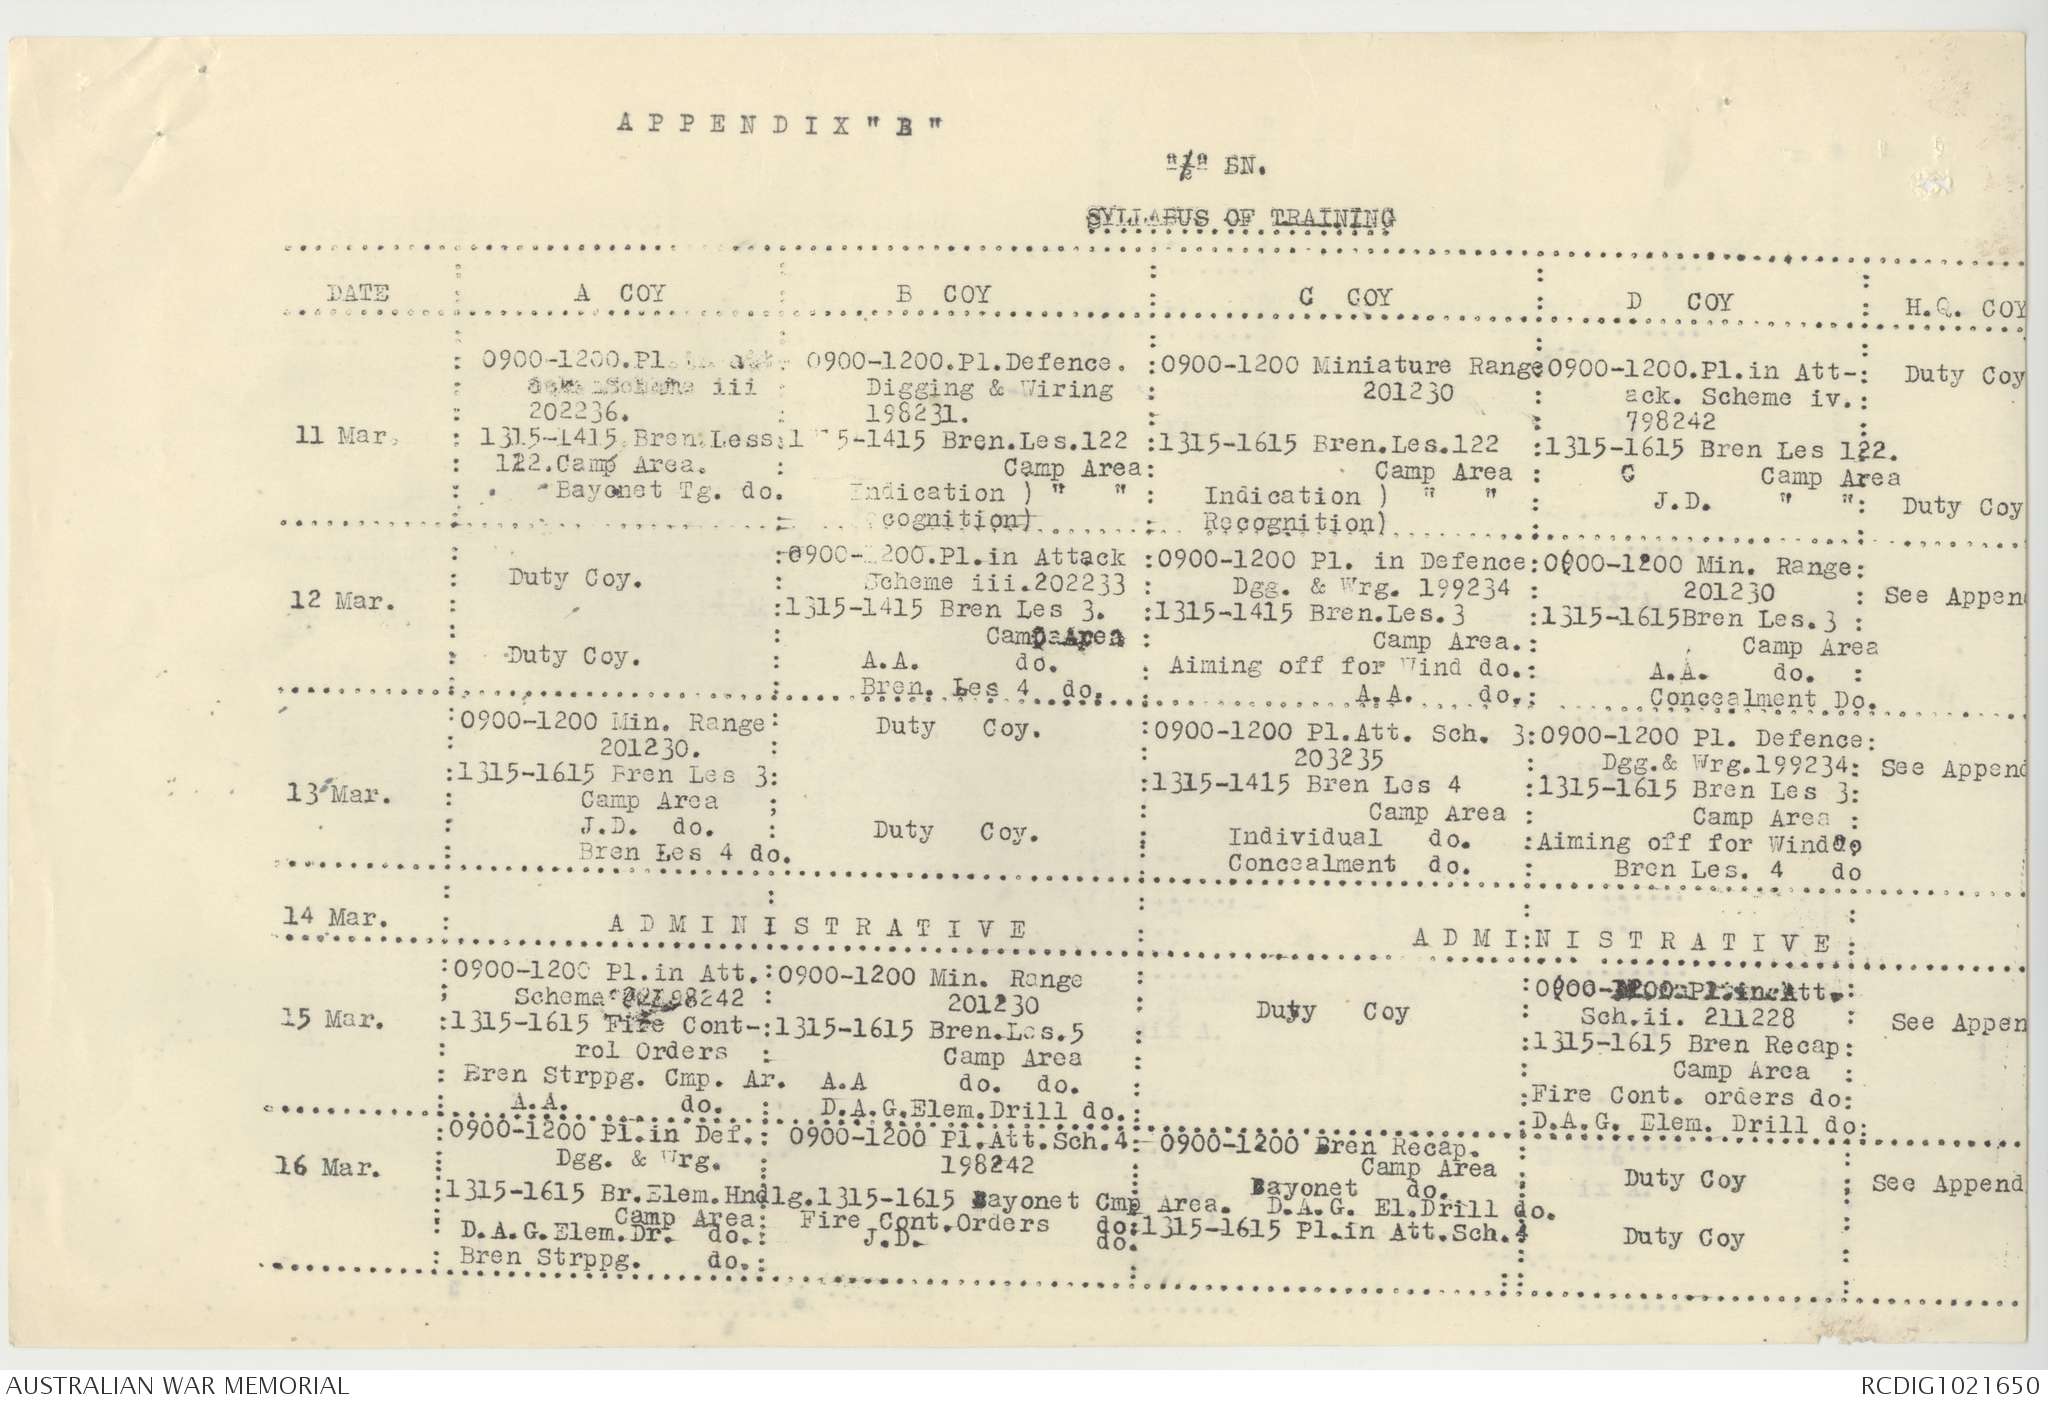 APPENDIX "B"
BN.
SYLLABUS OF TRAINING
DATE
A COY
B COY
C COY
D COY
H.Q. COY
11 Mar.
0900-1200.Pl.
iii
202236.
1315-1415.Bren.Less
122.Camp Area.
Bayonet Tg. do.
0900-1200.Pl.Defence.
Digging & Wiring
198231.
5-1415 Bren.Les.122
Camp Area
Indication ) " "
cognition)
0900-1200 Miniature Range
201230
1315-1615 Bren.Les.122
Camp Area
Indication ) " "
Recognition)
0900-1200.Pl.in Att-
ack. Scheme iv.
798242
1315-1615 Bren Les 122.
C Camp Area
J.D. " "
Duty Coy
Duty Coy
12 Mar.
Duty Coy.
Duty Coy.
0900-1200.Pl.in Attack
Scheme iii.202233
1315-1415 Bren Les 3.
Camp Area
A.A. do.
Bren. Les 4 do.
0900-1200 Pl. in Defence
Dgg. & Wrg. 199234
1315-1415 Bren.Les.3
Camp Area.
Aiming off for Wind do.
A.A. do.
0900-1200 Min. Range
201230
1315-1615Bren Les.3
Camp Area
A.A. do.
Concealment Do.
See Appen
13 Mar.
0900-1200 Min. Range
201230.
1315-1615 Bren Les 3
Camp Area
J.D. do.
Bren Les 4 do.
Duty Coy.
Duty Coy.
0900-1200 Pl.Att. Sch. 3
203235
1315-1415 Bren Les 4
Camp Area
Individual do.
Concealment do.
0900-1200 Pl. Defence
Dgg.& Wrg.199234
1315-1615 Bren Les 3
Camp Area
Aiming off for Wind
Bren Les. 4 do
See Append
14 Mar.
ADMINISTRATIVE
ADMINISTRATIVE
15 Mar.
0900-1200 Pl.in Att.
Schema 198242
1315-1615 Fire Cont-
rol Orders
Bren Strppg. Cmp. Ar.
A.A. do.
0900-1200 Min. Range
201230
1315-1615 Bren.Les.5
Camp Area
A.A do. do.
D.A.G.Elem.Drill do.
Duty Coy
0900-1200.Pl.in Att.
Sch.ii. 211228
1315-1615 Bren Recap
Camp Area
Fire Cont. orders do
D.A.G. Elem. Drill do
See Appen
16 Mar.
0900-1200 Pl.in Def.
Dgg. & Wrg.
1315-1615 Br.Elem.Hndlg.
Camp Area
D.A.G.Elem.Dr. do.
Bren Strppg. do.
0900-1200 Pl.Att.Sch.4
198242
1315-1615 Bayonet Cmp Area.
Fire Cont.Orders do
J.D. do.
0900-1200 Bren Recap.
Camp Area
Bayonet do.
D.A.G. El.Drill do.
1315-1615 Pl.in Att.Sch.4
Duty Coy
Duty Coy
See Append
AUSTRALIAN WAR MEMORIAL
RCDIG1021650